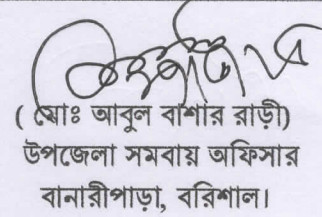 ( মোঃ আবুল বাশার রাড়ী)
উপজেলা সমবায় অফিসার
বানারীপাড়া, বরিশাল।